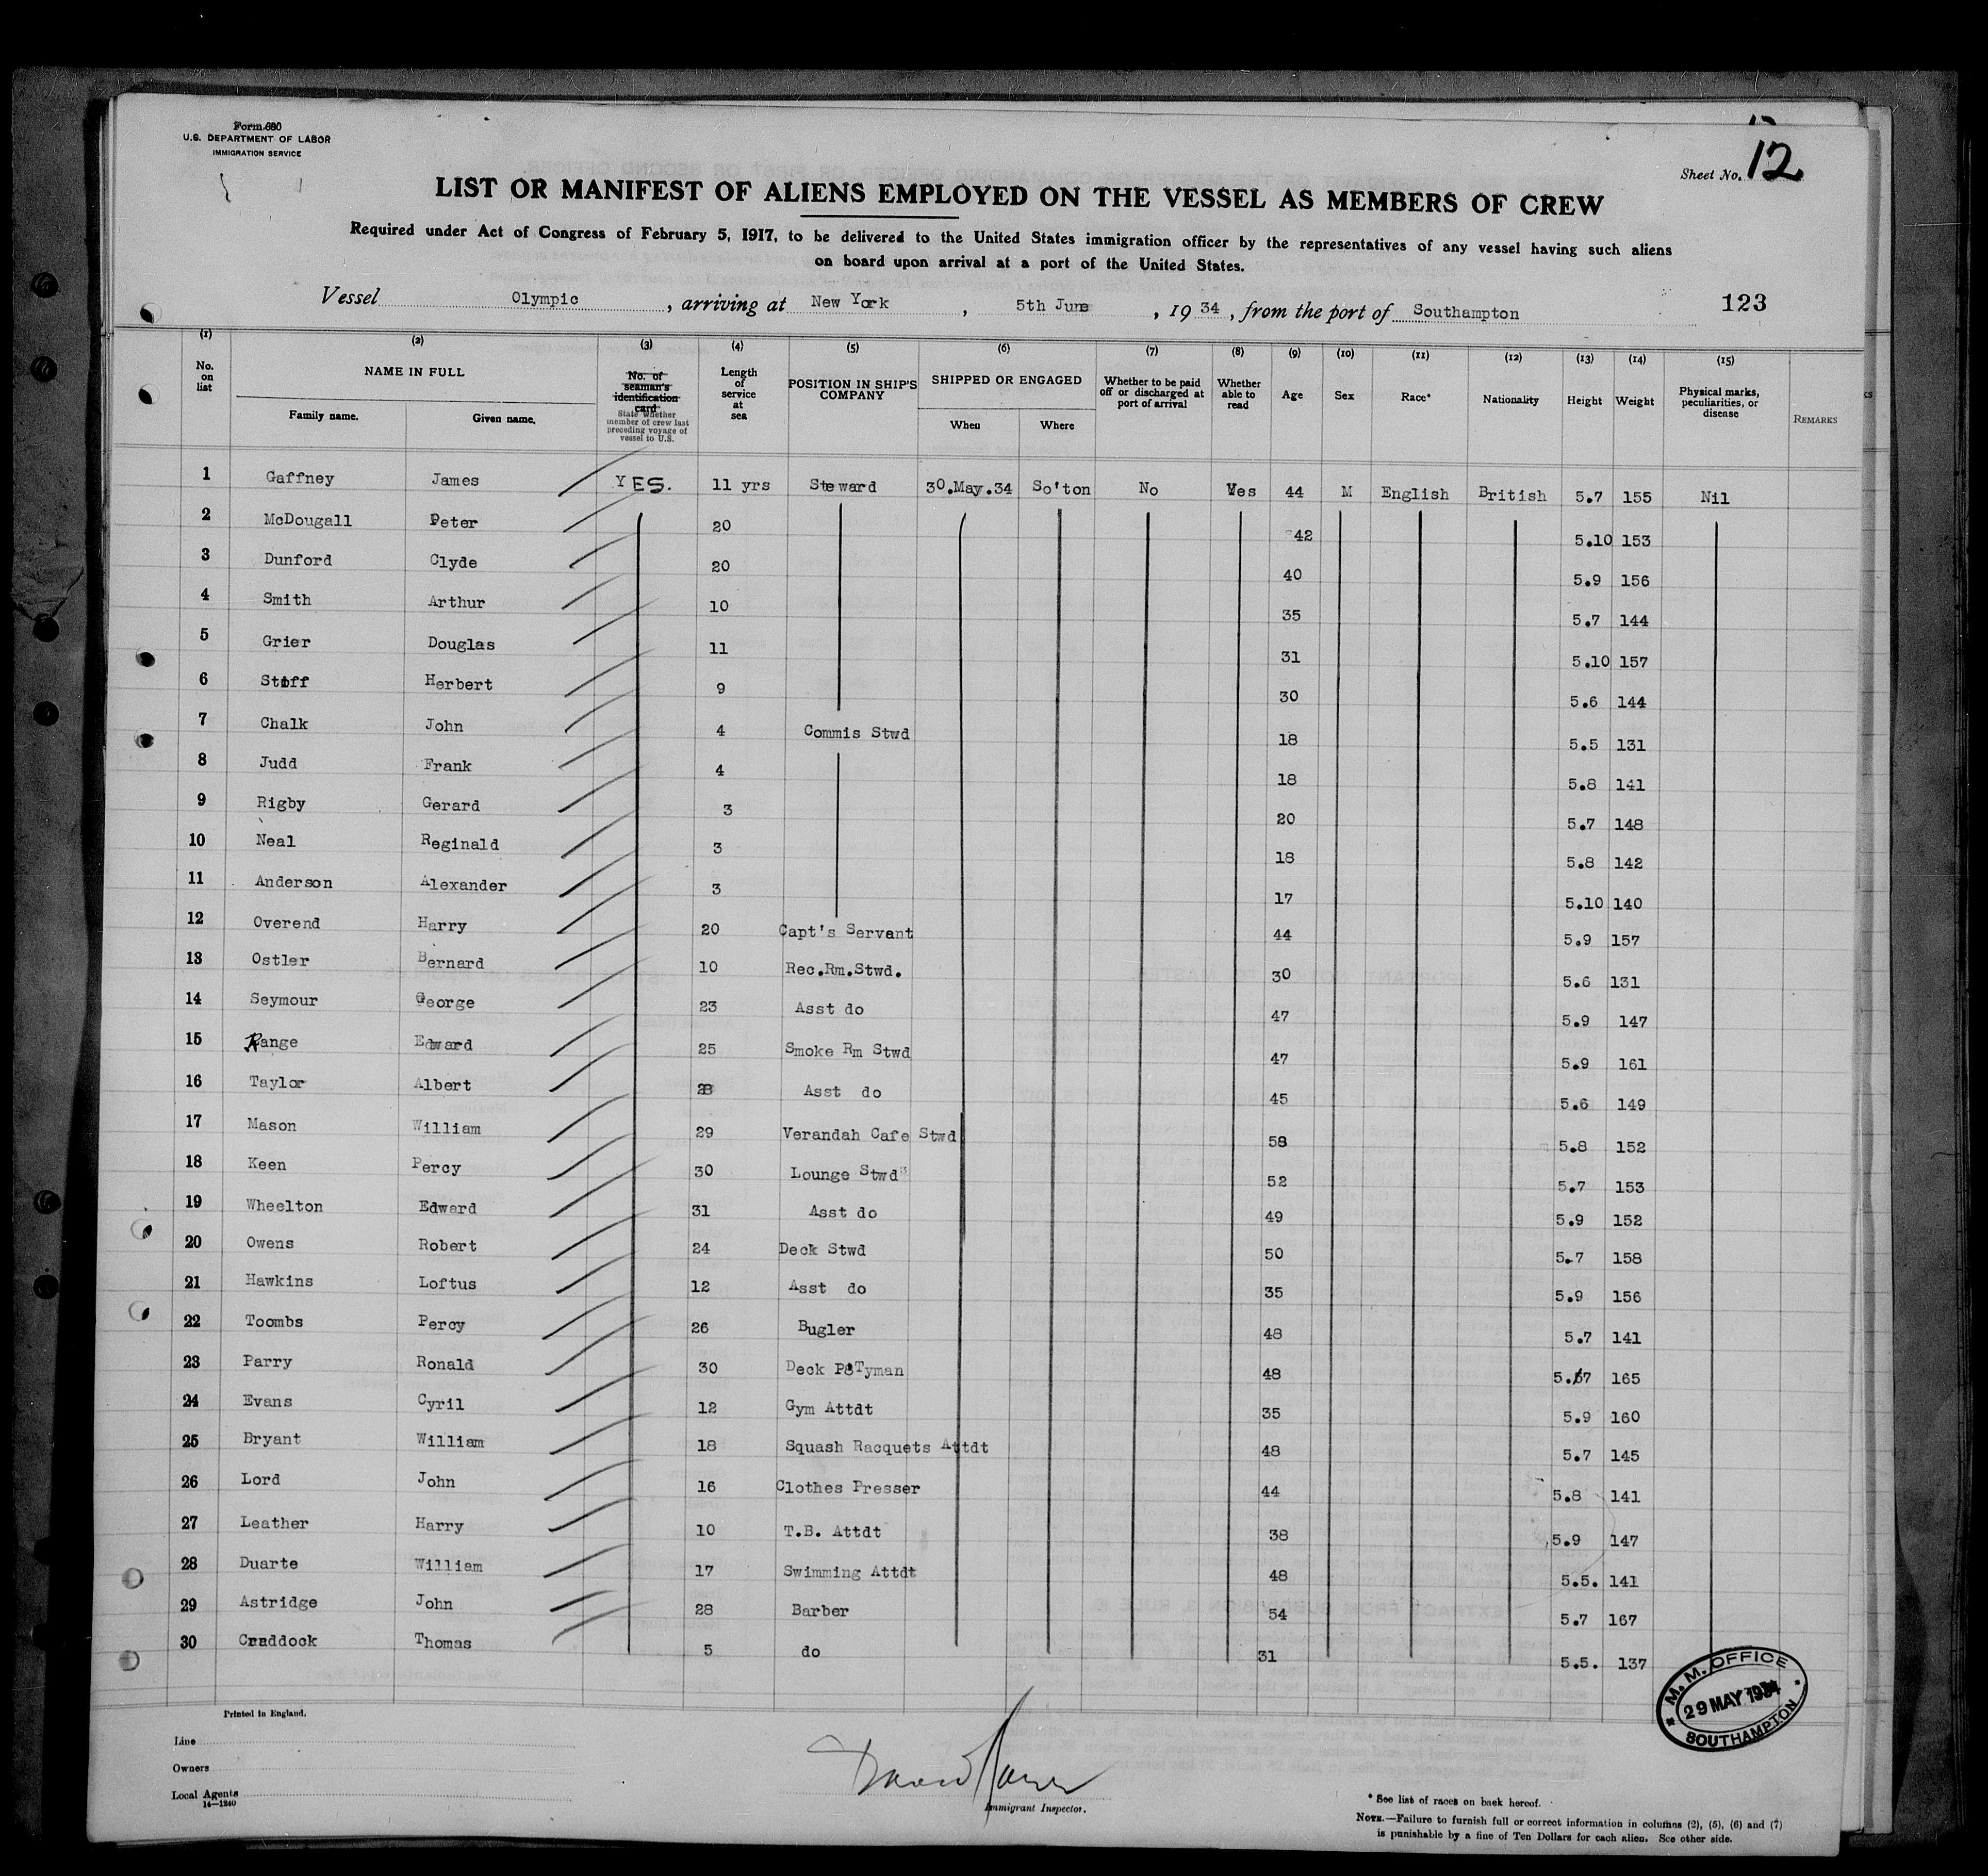 Form 680
U.S. DEPARTMENT OF LABOR
IMMIGRATION SERVICE
Sheet No. 12
LIST OR MANIFEST OF ALIENS EMPLOYED ON THE VESSEL AS MEMBERS OF CREW
Required under Act of Congress of February 5, 1917, to be delivered to the United States immigration officer by the representatives of any vessel having such aliens
on board upon arrival at a port of the United States.
Vessel Olympic, arriving at New York, 5th June, 1934, from the port of Southampton 123
(1) (2) (3) (4) (5) (6) (7) (8) (9) (10) (11) (12) (13) (14) (15)
No. on list NAME IN FULL Family name. Given name. No. of seaman's identification card State whether member of crew last preceding voyage of vessel to U.S. Length of service at sea POSITION IN SHIP'S COMPANY SHIPPED OR ENGAGED When Where Whether to be paid off or discharged at port of arrival Whether able to read Age Sex Race* Nationality Height Weight Physical marks, peculiarities, or disease REMARKS
1 Gaffney James YES. 11 yrs Steward 30.May.34 So'ton No Yes 44 M English British 5.7 155 Nil
2 McDougall Peter 20 42 5.10 153
3 Dunford Clyde 20 40 5.9 156
4 Smith Arthur 10 35 5.7 144
5 Grier Douglas 11 31 5.10 157
6 Herbert 9 30 5.6 144
7 Chalk John 4 Commis Stwd 18 5.5 131
8 Judd Frank 4 18 5.8 141
9 Rigby Gerard 3 20 5.7 148
10 Neal Reginald 3 18 5.8 142
11 Anderson Alexander 3 17 5.10 140
12 Overend Harry 20 Capt's Servant 44 5.9 157
13 Ostler Bernard 10 Rec.Rm.Stwd. 30 5.6 131
14 Seymour George 23 Asst do 47 5.9 147
15 Range Edward 25 Smoke Rm Stwd 47 5.9 161
16 Taylor Albert 28 Asst do 45 5.6 149
17 Mason William 29 Verandah Cafe Stwd 58 5.8 152
18 Keen Percy 30 Lounge Stwd 52 5.7 153
19 Wheelton Edward 31 Asst do 49 5.9 152
20 Owens Robert 24 Deck Stwd 50 5.7 158
21 Hawkins Loftus 12 Asst do 35 5.9 156
22 Toombs Percy 26 Bugler 48 5.7 141
23 Parry Ronald 30 Deck 48 5.7 165
24 Evans Cyril 12 Gym Attdt 35 5.9 160
25 Bryant William 18 Squash Racquets Attdt 48 5.7 145
26 Lord John 16 Clothes Presser 44 5.8 141
27 Leather Harry 10 T.B. Attdt 38 5.9 147
28 Duarte William 17 Swimming Attdt 48 5.5. 141
29 Astridge John 28 Barber 54 5.7 167
30 Craddock Thomas 5 do 31 5.5. 137
M. M. OFFICE
29 MAY 1934
SOUTHAMPTON
Printed in England.
Line
Owners
Local Agents
14—1240
Immigrant Inspector.
* See list of races on back hereof.
NOTE.—Failure to furnish full or correct information in columns (2), (5), (6) and (7)
is punishable by a fine of Ten Dollars for each alien. See other side.